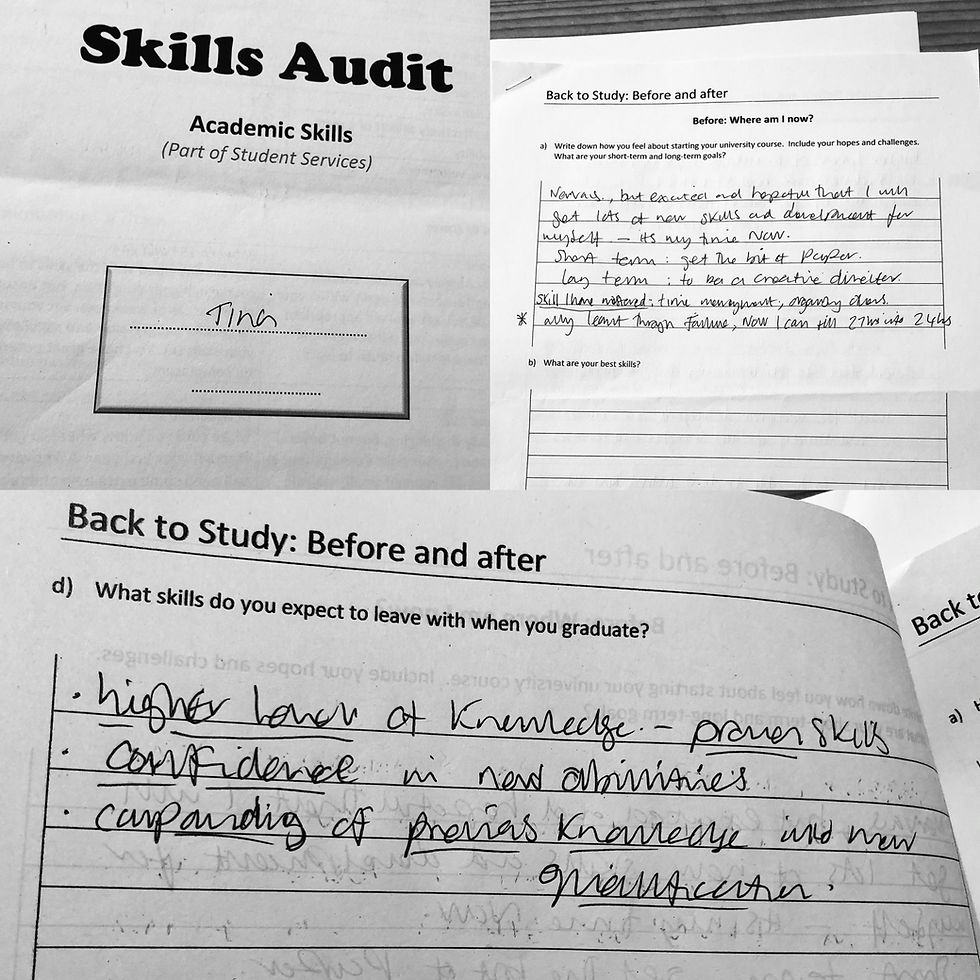 Skills Audit
Academic Skills
(Part of Student Services)
Tina
Back to Study: Before and after
Before: Where am I now?
a) Write down how you feel about starting your university course. Include your hopes and challenges.
What are your short-term and long-term goals?
Nervous, but excited and hopeful that I will
get lots of new skills and development for
myself – its my time Now.
Short term : get the bit of Paper.
Long term : to be a creative director.
Skill I have mastered : time management, organising
* learnt through failure, Now I can fill 27hrs into 24hrs
b) What are your best skills?
Back to Study: Before and after
d) What skills do you expect to leave with when you graduate?
• higher level of Knowledge – proven skills
• confidence in new abilities
• expanding of previous knowledge into new
qualification.
Back to
a)